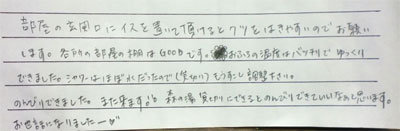 部屋の玄関口にイスを置いて頂けるとクツをはきやすいのでお願い
します。各所の部屋の棚はGOODです。おふろの温度はバッチリでゆっくり
できました。シャワーはほぼ水だったので(貸切り)もう少し調整下さい。
のんびりできました。また来ます。森の湯貸切りにできるとのんびりできていいなぁと思います。
お世話になりました―♡